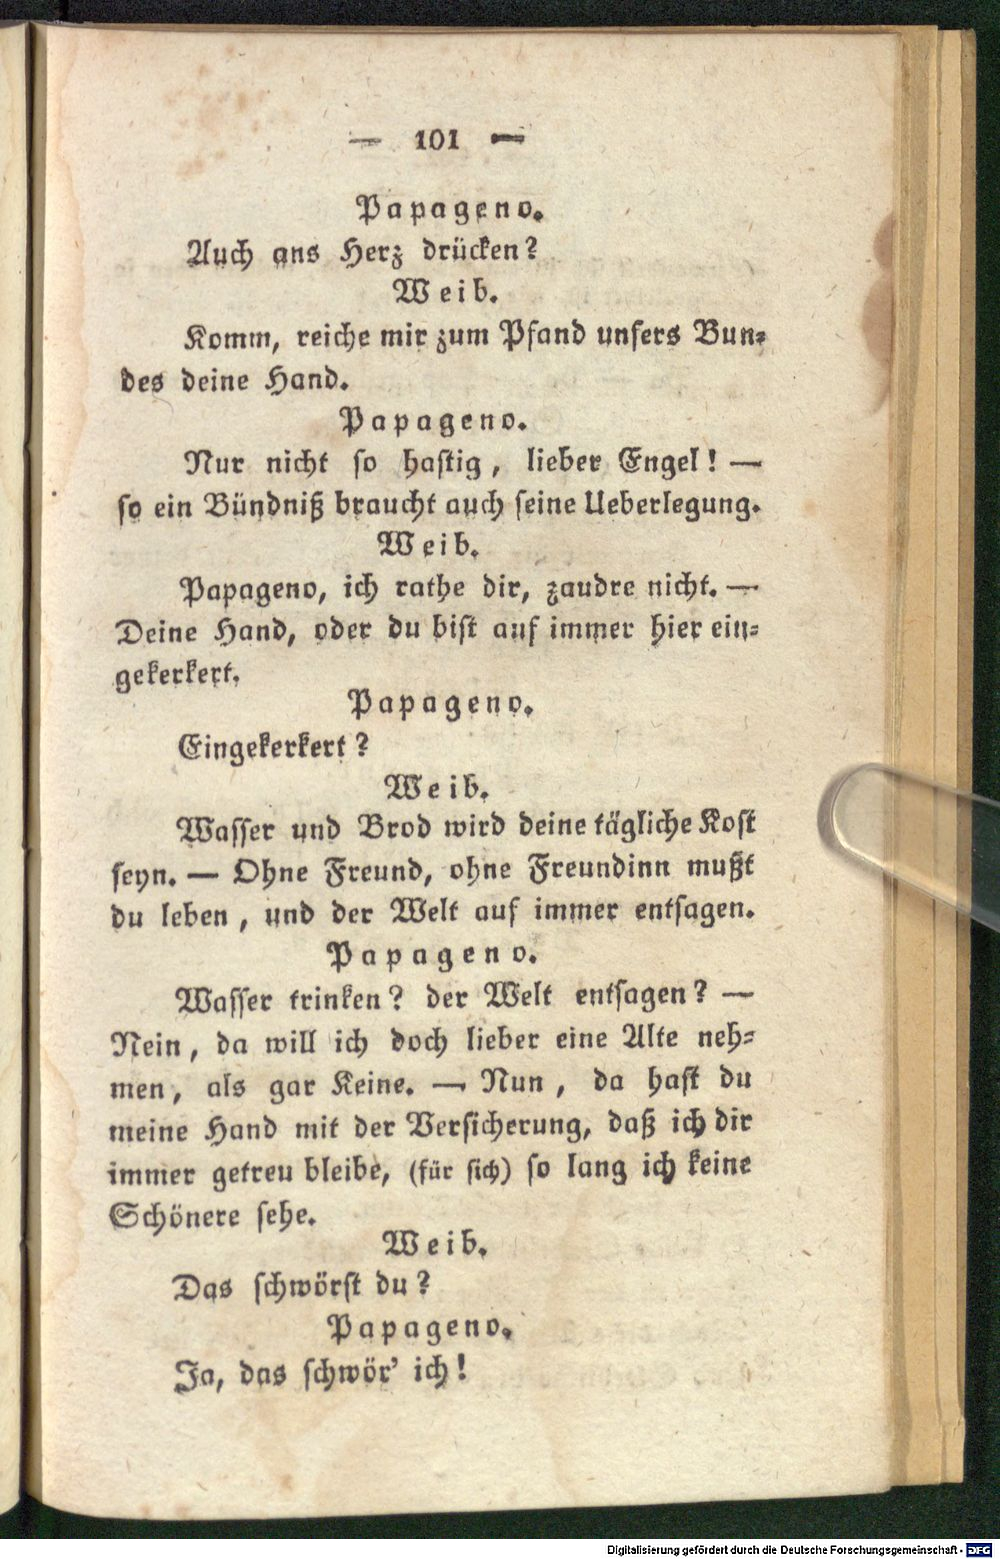 — 101 —
Papageno.
Auch ans Herz drücken?
Weib.
Komm, reiche mir zum Pfand unsers Bun-
des deine Hand.
Papageno.
Nur nicht so hastig, lieber Engel! —
so ein Bündniß braucht auch seine Ueberlegung.
Weib.
Papageno, ich rathe dir, zaudre nicht. —
Deine Hand, oder du bist auf immer hier ein-
gekerkert.
Papageno.
Eingekerkert?
Weib.
Wasser und Brod wird deine tägliche Kost
seyn. — Ohne Freund, ohne Freundinn mußt
du leben, und der Welt auf immer entsagen.
Papageno.
Wasser trinken? der Welt entsagen? —
Nein, da will ich doch lieber eine Alte neh-
men, als gar Keine. — Nun, da hast du
meine Hand mit der Versicherung, daß ich dir
immer getreu bleibe, (für sich) so lang ich keine
Schönere sehe.
Weib.
Das schwörst du?
Papageno.
Ja, das schwör' ich!
Digitalisierung gefördert durch die Deutsche Forschungsgemeinschaft - DFG